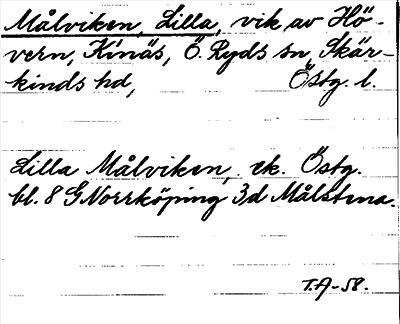 Målviken, Lilla, vik av Hö-
vern, Kinäs, Ö. Ryds sn, Skär-
kinds hd, Östg. l.
Lilla Målviken, ek. Östg.
bl. 8 G Norrköping 3d Målstena.
T.A-58.